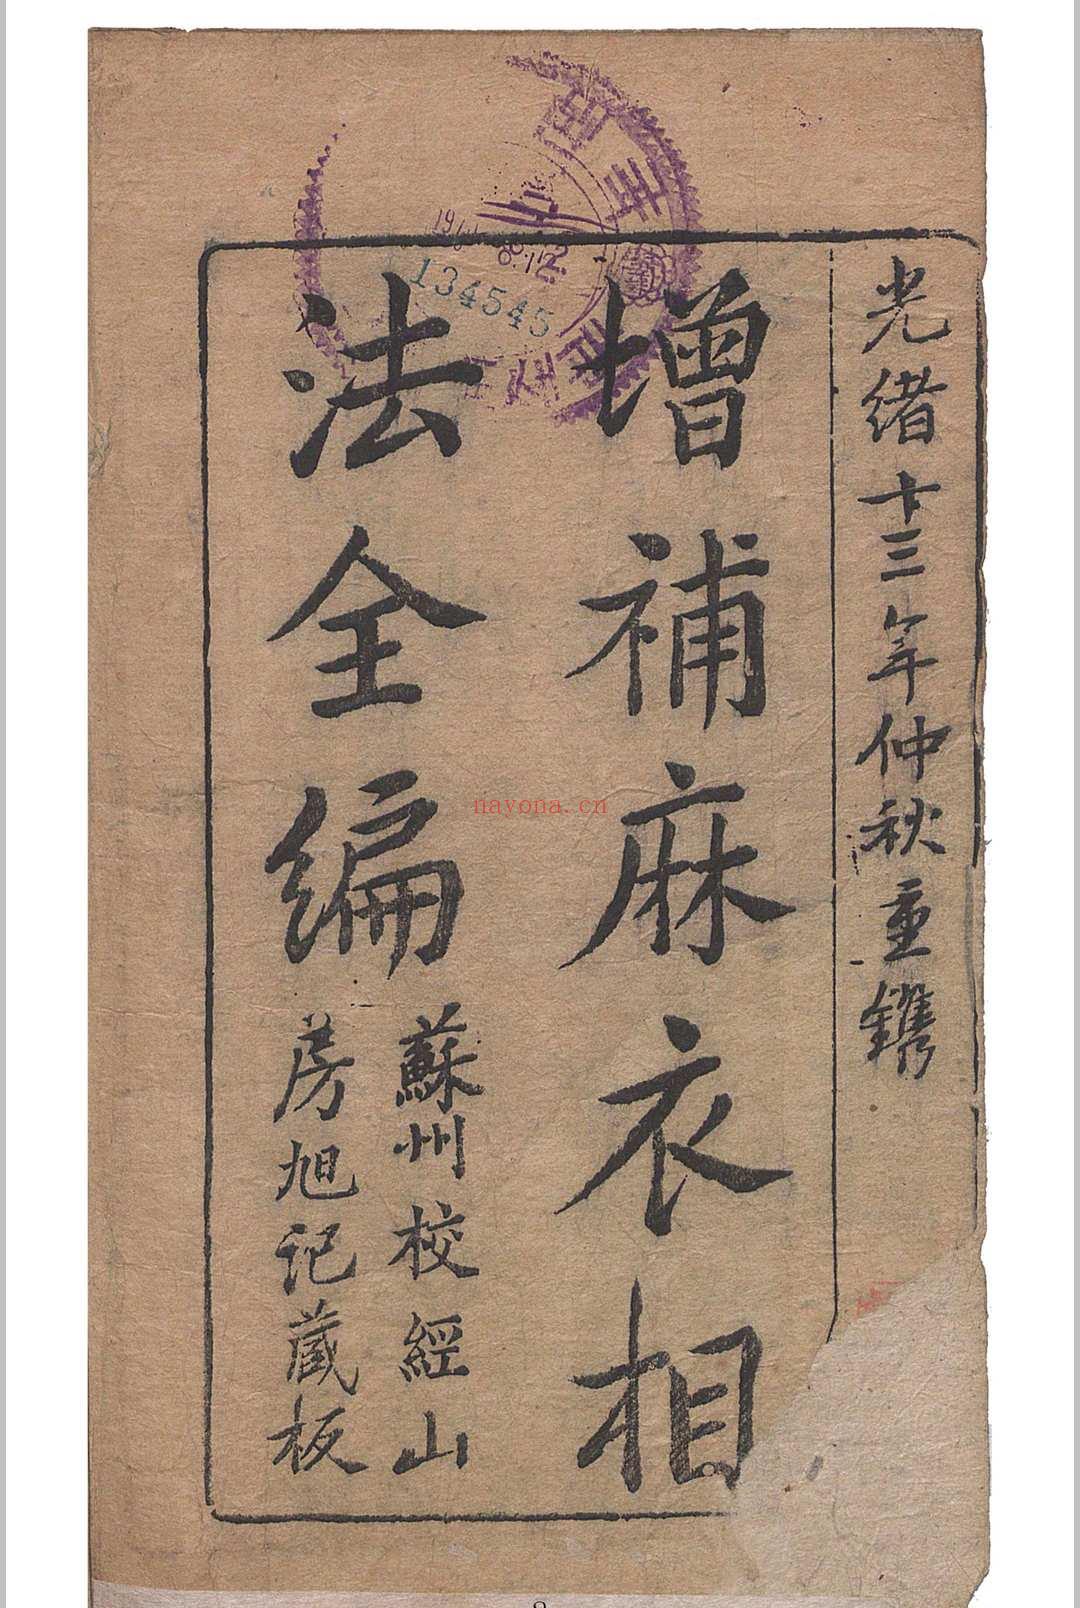 光緒十三年仲秋重鐫
增補麻衣相
法全編
蘇州校經山
房旭记藏板
134545
nayona.cn